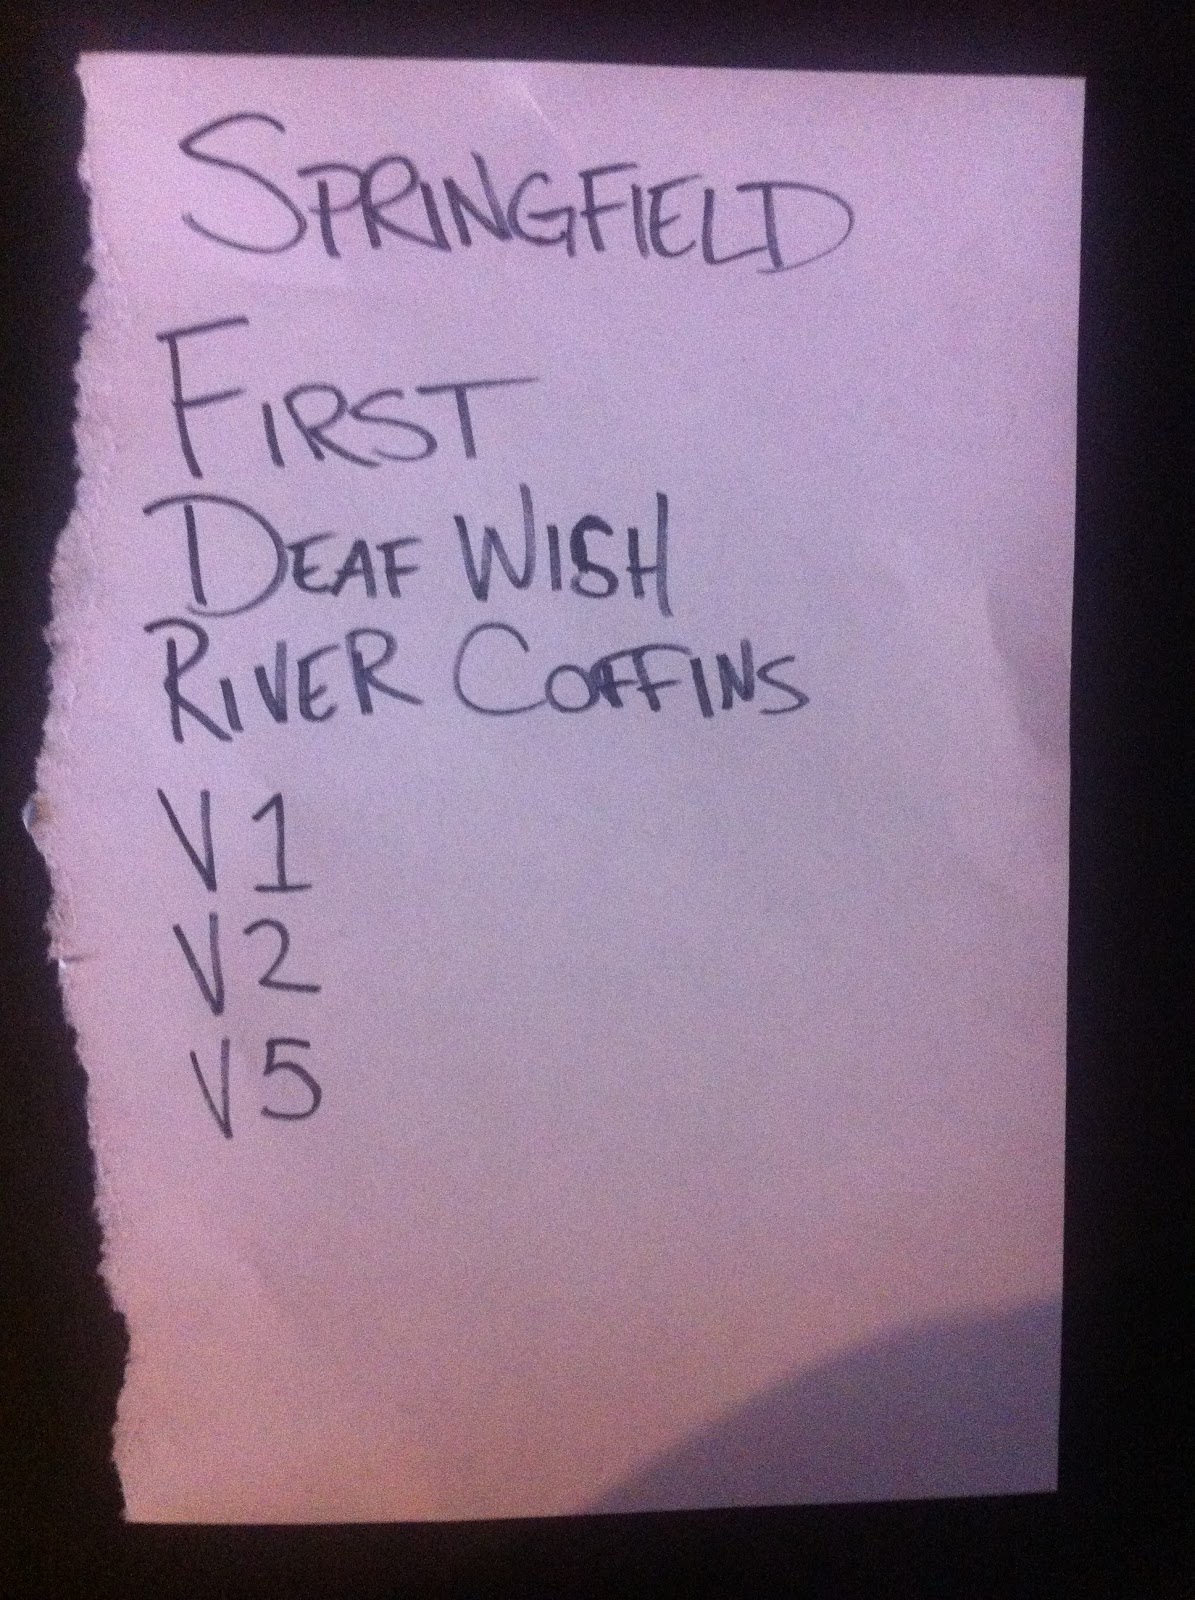 SPRINGFIELD
FIRST
DEAF WISH
RIVER COFFINS
V1
V2
V5